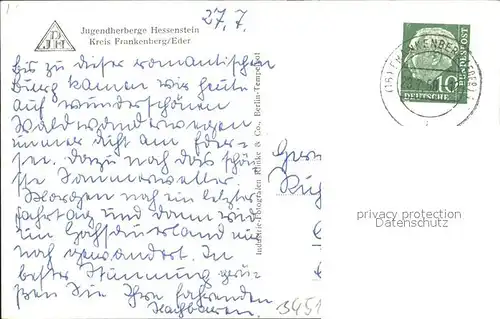 27. 7.
Jugendherberge Hessenstein
Kreis Frankenberg/Eder
DJH
Bis zu dieser romantischen
Burg kamen wir heute
auf wunderschönen
Waldwanderwegen
immer dicht am Eder-
see. Dazu noch das schön-
ste Sommerwetter
Morgen noch ein letzter
Fahrtag und dann wird
im Hochsauerland nur
noch gewandert. In
bester Stimmung grü-
ßen Sie Ihre fahrenden
Nachbarn.
Industrie-Fotografen Klinke & Co., Berlin-Tempelhof
FRANKENBERG
10
DEUTSCHE
BUNDESPOST
privacy protection
Datenschutz
3451